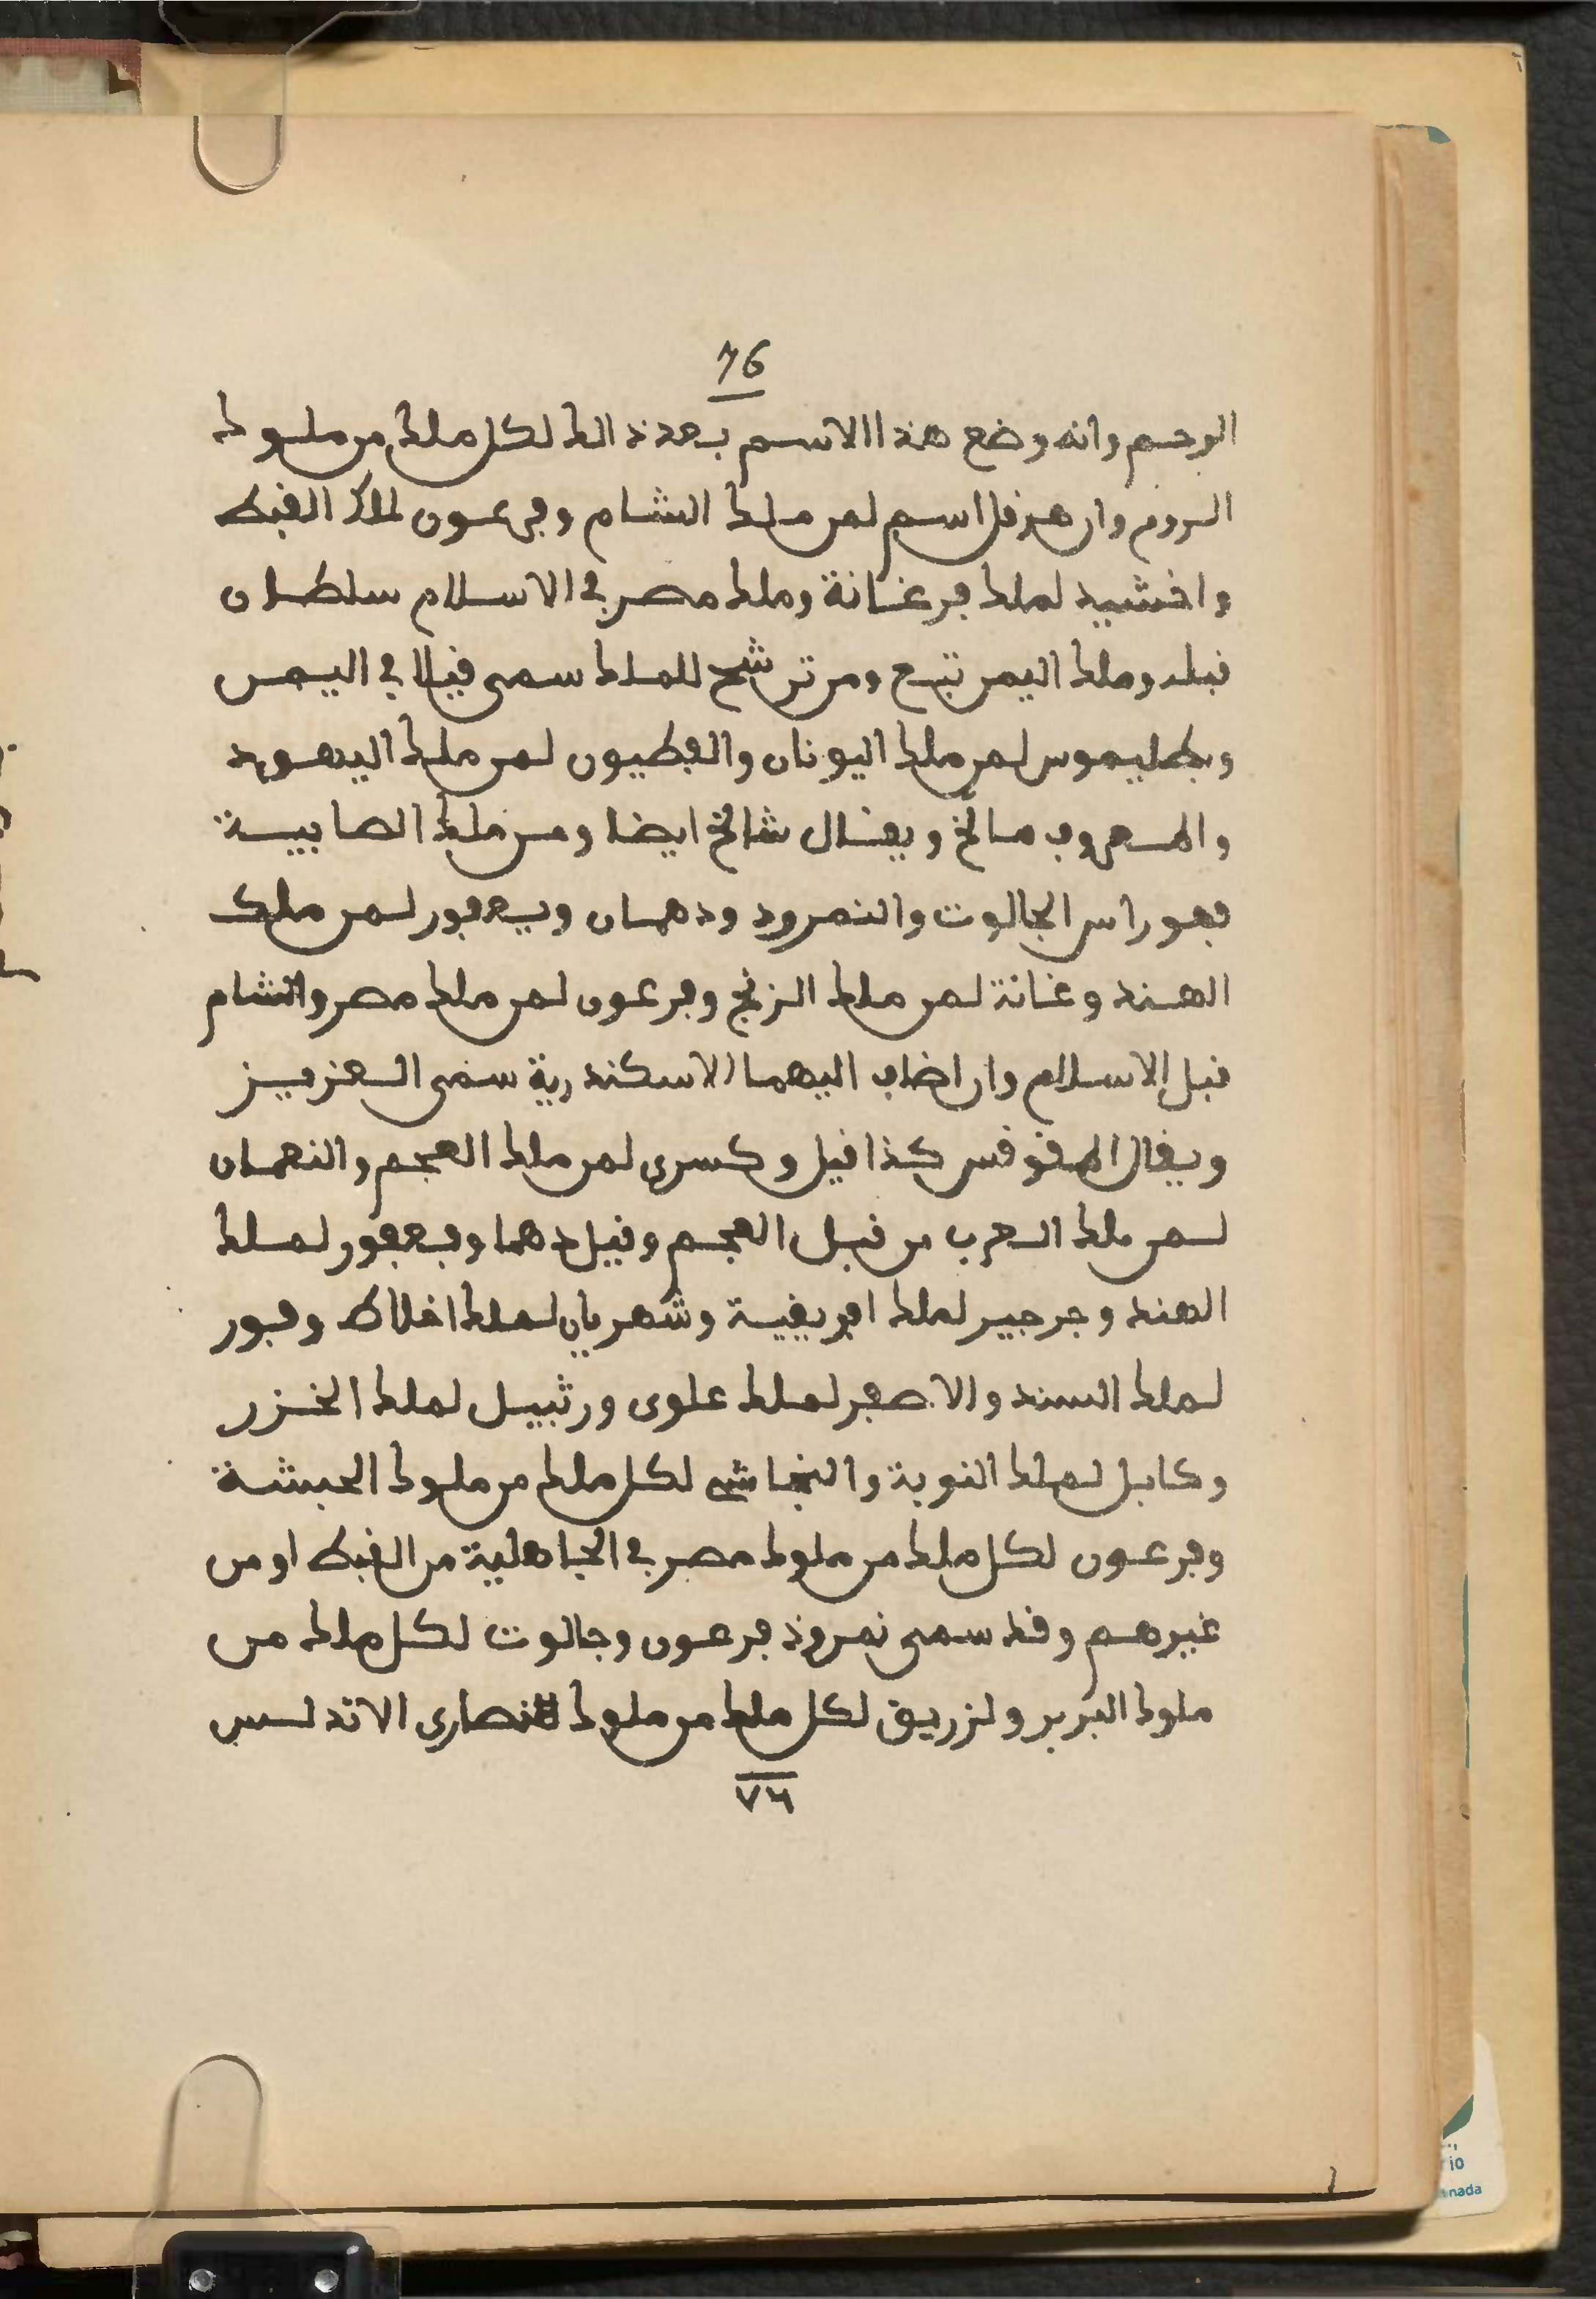 76
الرحيم وانه وضع هذا الاسم بعد ذالك لكل ملك من ملوك
الروم وان هرقل اسم لمن ملك الشام وفرعون لملك القبط
واخشيد لملك فرغانة وملك مصر في الاسلام سلطان
قبله وملك اليمن تبع ومن ترشح للملك سمى قيلا في اليمن
وبطليموس لمن ملك اليونان والفطيون لمن ملك اليهود
والمعروف مالخ ويقال شالخ ايضا ومن ملك الصابية
فهو راس الجالوت والنمرود ودهمان ويعفور لمن ملك
الهند وغانة لمن ملك الزنج وفرعون لمن ملك مصر والشام
قبل الاسلام وان اضاف اليهما الاسكندرية سمى العزيز
ويقال المقوقس كذا قيل وكسرى لمن ملك العجم والنعمان
لمن ملك العرب من قبل العجم وقيل دهما وفعفور لملك
الهند وجرجير لملك افريقية وشهريان لملك اخلاط وفور
لملك السند والاصفر لملك علوى ورتبيل لملك الخزر
وكابل لملك النوبة والنجاشي لكل ملك من ملوك الحبشة
وفرعون لكل ملك من ملوك مصر في الجاهلية من القبط او من
غيرهم وقد سمى نمروذ فرعون وجالوت لكل ملك من
ملوك البربر ولزريق لكل ملك من ملوك النصارى الاندلس
٧٦